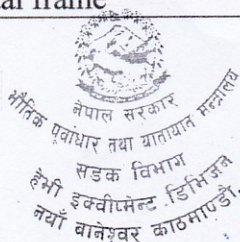 tal frame
नेपाल सरकार
भौतिक पूर्वाधार तथा यातायात मन्त्रालय
सडक विभाग
हेभी इक्वीप्मेन्ट डिभिजन
नयाँ बानेश्वर काठमाण्डौ.